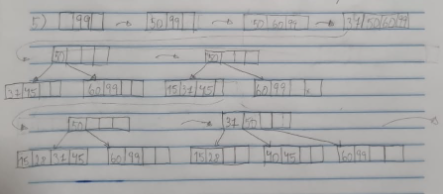 5) 99 → 50 99 → 50 60 99 → 37 50 60 99
50 → 50
37 45 60 99 15 37 45 60 99
50 → 37 50
15 28 37 45 60 99 15 28 40 45 60 99